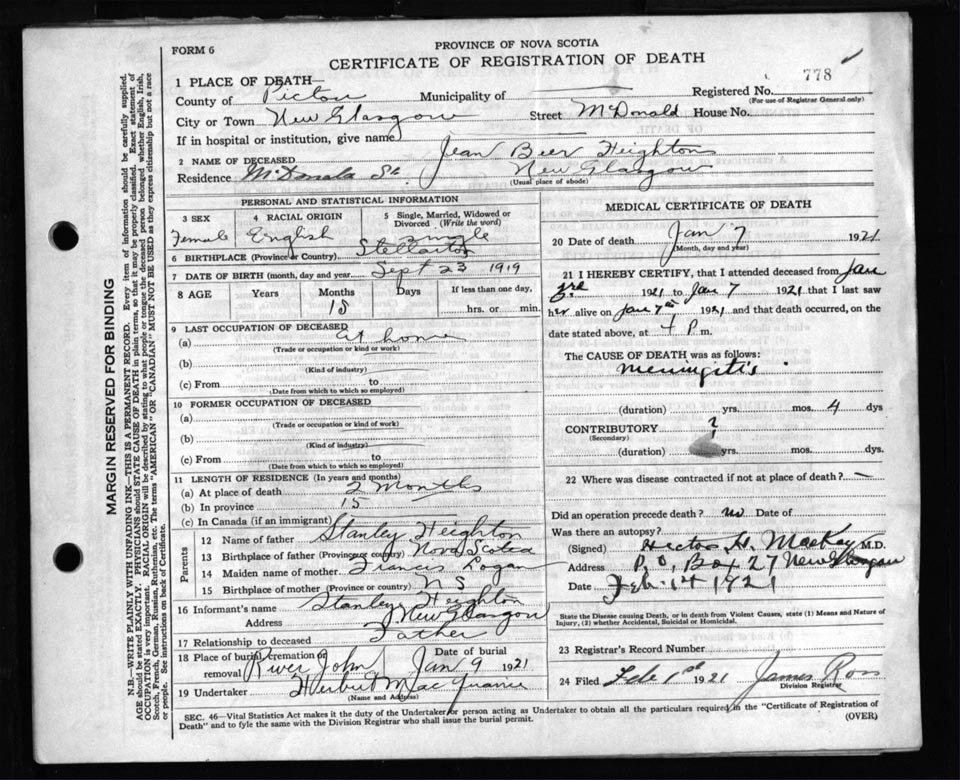 FORM 6
PROVINCE OF NOVA SCOTIA
CERTIFICATE OF REGISTRATION OF DEATH
1 PLACE OF DEATH—
County of Pictou Municipality of — Registered No. 778
(For use of Registrar General only)
City or Town New Glasgow Street McDonald House No.
If in hospital or institution, give name
2 NAME OF DECEASED Jean Beer Heighton
Residence McDonald St. New Glasgow
(Usual place of abode)
PERSONAL AND STATISTICAL INFORMATION
3 SEX Female
4 RACIAL ORIGIN English
5 Single, Married, Widowed or Divorced (Write the word) Single
6 BIRTHPLACE (Province or Country) Stellarton
7 DATE OF BIRTH (month, day and year) Sept 23 1919
8 AGE Years Months Days If less than one day,
15 hrs. or min.
9 LAST OCCUPATION OF DECEASED
(a) at home
(Trade or occupation or kind or work)
(b)
(Kind of industry)
(c) From to
(Date from which to which so employed)
10 FORMER OCCUPATION OF DECEASED
(a)
(Trade or occupation or kind of work)
(b)
(Kind of industry)
(c) From to
(Date from which to which so employed)
11 LENGTH OF RESIDENCE (In years and months)
(a) At place of death 2 Months
(b) In province 15
(c) In Canada (if an immigrant)
Parents
12 Name of father Stanley Heighton
13 Birthplace of father (Province or country) Nova Scotia
14 Maiden name of mother Francis Logan
15 Birthplace of mother (Province or country) N S
16 Informant's name Stanley Heighton
Address New Glasgow
17 Relationship to deceased Father
18 Place of burial cremation or removal River John Date of burial Jan 9 1921
19 Undertaker Herbert
(Name and Address)
MEDICAL CERTIFICATE OF DEATH
20 Date of death Jan 7 1921
(Month, day and year)
21 I HEREBY CERTIFY, that I attended deceased from Jan
3rd 1921 to Jan 7 1921 that I last saw
her alive on Jan 7th 1921 and that death occurred, on
the date stated above, at 4 P m.
The CAUSE OF DEATH was as follows:
Meningitis
(duration) yrs. mos. 4 dys
CONTRIBUTORY ?
(Secondary)
(duration) yrs. mos. dys
22 Where was disease contracted if not at place of death? —
Did an operation precede death? no Date of
Was there an autopsy?
(Signed) Hector H. MacKay M.D.
Address P.O. Box 27 New Glasgow
Date Feb. 1st 1921
State the Disease causing Death, or in death from Violent Causes, state (1) Means and Nature of
Injury, (2) whether Accidental, Suicidal or Homicidal.
23 Registrar's Record Number
24 Filed Feb 1st 1921 James Ross
Division Registrar
SEC. 46—Vital Statistics Act makes it the duty of the Undertaker or person acting as Undertaker to obtain all the particulars required in the "Certificate of Registration of
Death" and to fyle the same with the Division Registrar who shall issue the burial permit. (OVER)
MARGIN RESERVED FOR BINDING
N.B.—WRITE PLAINLY WITH UNFADING INK—THIS IS A PERMANENT RECORD. Every item of information should be carefully supplied.
AGE should be stated EXACTLY. PHYSICIANS should STATE CAUSE OF DEATH in plain terms, so that it may be properly classified. Exact statement of
OCCUPATION is very important. RACIAL ORIGIN will be described by stating to what people or tongue the deceased person belonged, whether English, Irish,
Scotch, French, German, Russian, Ruthenian, etc. The terms "AMERICAN" or "CANADIAN" MUST NOT BE USED as they express citizenship but not a race
or people. See instructions on back of Certificate.